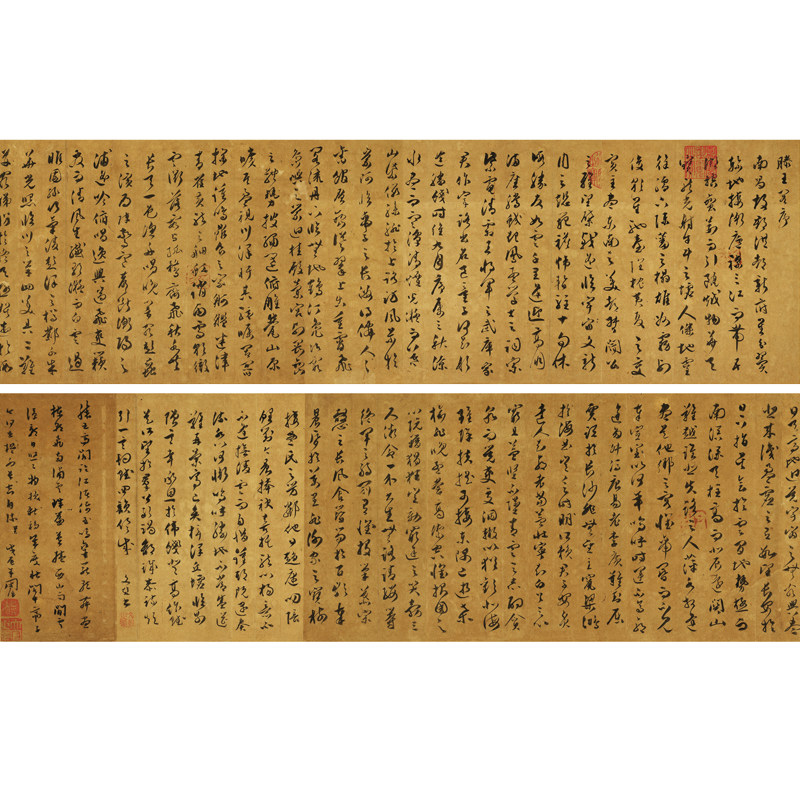 滕王閣序
南昌故郡洪都新府星分翼
軫地接衡廬襟三江而帶五
湖控蠻荊而引甌越物華天
寶龍光射牛斗之墟人傑地靈
徐孺下陳蕃之榻雄州霧列
俊彩星馳臺隍枕夷夏之交
賓主盡東南之美都督閻公
之雅望棨戟遙臨宇文新
州之懿範襜帷暫駐十旬休
暇勝友如雲千里逢迎高朋
滿座騰蛟起鳳孟學士之詞宗
紫電清霜王將軍之武庫家
君作宰路出名區童子何知躬
逢勝餞時維九月序屬三秋潦
水盡而寒潭清煙光凝而暮
山紫儼驂騑於上路訪風景於
崇阿臨帝子之長洲得仙人之
舊館層巒聳翠上出重霄飛
閣流丹下臨無地鶴汀鳧渚窮
島嶼之縈迴桂殿蘭宮列岡巒
之體勢披繡闥俯雕甍山原
曠其盈視川澤紆其駭矚閭閻
撲地鐘鳴鼎食之家舸艦迷津
青雀黃龍之舳虹銷雨霽彩徹
雲衢落霞與孤鶩齊飛秋水共
長天一色漁舟唱晚響窮彭蠡
之濱雁陣驚寒聲斷衡陽之
浦遙吟俯暢逸興遄飛爽籟
發而清風生纖歌凝而白雲遏
睢園綠竹氣凌彭澤之樽鄴水朱
華光照臨川之筆四美具二難
并窮睇眄於中天極娛遊於暇
日天高地迥覺宇宙之無窮興盡
悲來識盈虛之有數望長安於
日下指吳會於雲間地勢極而
南溟深天柱高而北辰遠關山
難越誰悲失路之人萍水相逢
盡是他鄉之客懷帝閽而不見
奉宣室以何年嗚呼時運不齊命
途多舛馮唐易老李廣難封屈
賈誼於長沙非無聖主竄梁鴻
於海曲豈乏明時所賴君子安貧
達人知命老當益壯寧知白首之心
窮且益堅不墜青雲之志酌貪
泉而覺爽處涸轍以猶懽北海
雖賒扶搖可接東隅已逝桑
榆非晚孟嘗高潔空懷報國之
心阮籍猖狂豈效窮途之哭勃三
尺微命一介書生無路請纓等
終軍之弱冠有懷投筆慕宗
愨之長風舍簪笏於百齡奉
晨昏於萬里非謝家之寶樹
接孟氏之芳鄰他日趨庭叨陪
鯉對今辰捧袂喜託龍門楊意不
逢撫凌雲而自惜鍾期既遇奏
流水以何慚嗚呼勝地不常盛筵
難再蘭亭已矣梓澤丘墟臨別
贈言幸承恩於偉餞登高作賦
是所望於群公敢竭鄙誠恭疏短
引一言均賦四韻俱成
滕王高閣臨江渚佩玉鳴鸞罷歌舞畫
棟朝飛南浦雲珠簾暮捲西山雨閒雲